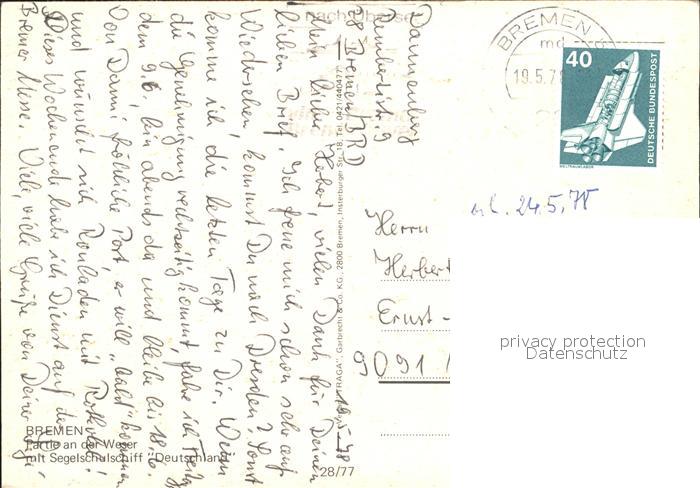 Dannenburg
Rembertistr. 9
28 Bremen / BRD
19.5.78
Mein lieber Herbert, vielen Dank für Deinen
lieben Brief. Ich freue mich schon sehr auf
Wiedersehen, kommst Du nach Dresden? Sonst
komme ich die letzten Tage zu Dir. Wenn
die Genehmigung rechtzeitig kommt, fahre ich Freitg
dem 9.6. bin abends da und bleibe bis 18.6.
Von Dammi fröhliche Post, er will "bald" kommen
und wünscht sich Rouladen mit Rotkohl!
Dieses Wochenende habe ich Dienst auf der
Bremer Messe. Viele, viele Grüße von Deiner
BREMEN
md
19.5.7
40
DEUTSCHE BUNDESPOST
WELTRAUMLABOR
erh. 24.5.78
Herrn
Herbert
Ernst-
9091
privacy protection
Datenschutz
Garbrecht & Co. KG., 2800 Bremen, Insterburger Str. 18, Tel. 0421/440477
BREMEN
Partie an der Weser
mit Segelschulschiff "Deutschland"
28/77